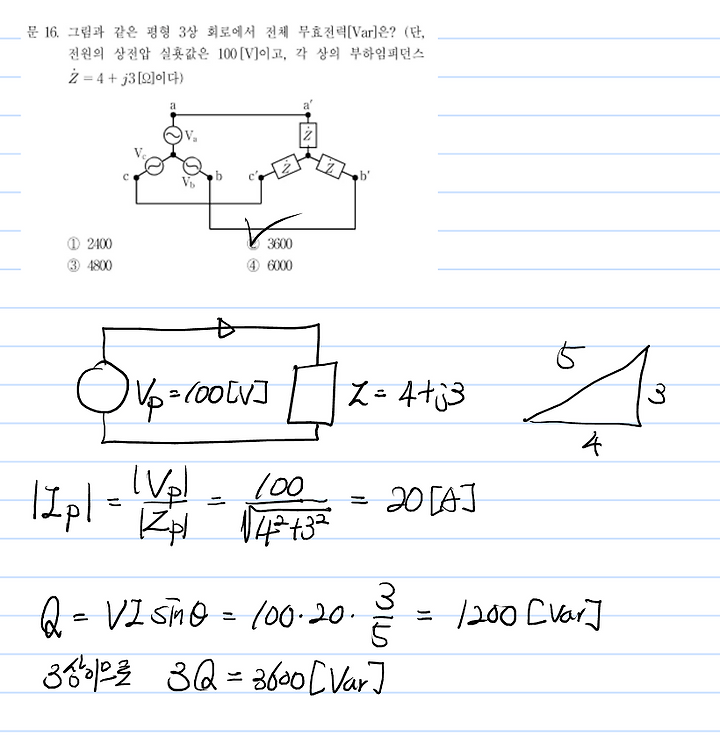 문 16. 그림과 같은 평형 3상 회로에서 전체 무효전력[Var]은? (단,
전원의 상전압 실횻값은 100[V]이고, 각 상의 부하임피던스
Ż = 4 + j3[Ω]이다)
a a′
Vₐ Ż
V꜀ Ż Ż
c V_b b c′ b′
① 2400 ② 3600
③ 4800 ④ 6000
Vp = 100[V] Z = 4+j3
5 3 4
|Ip| = |Vp| / |Zp| = 100 / √(4²+3²) = 20[A]
Q = VI sinθ = 100·20· 3/5 = 1200 [Var]
3상이므로 3Q = 3600[Var]